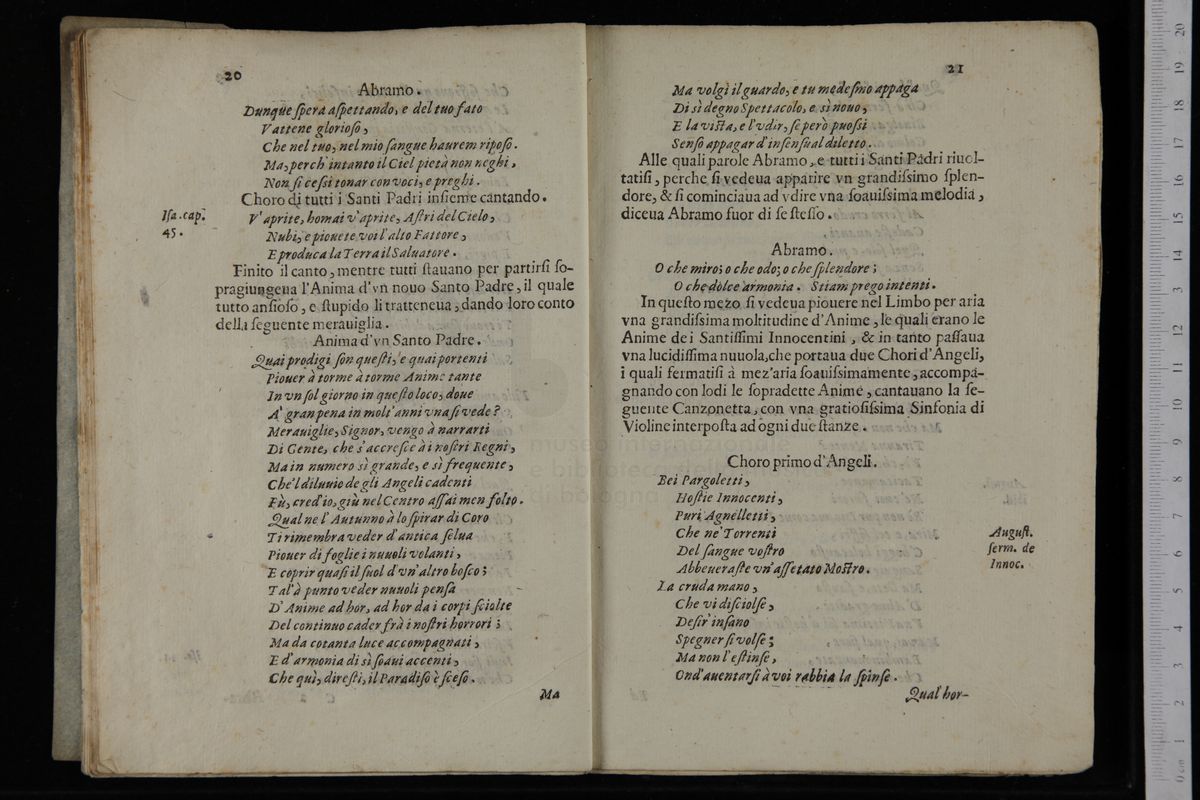 20
Abramo.
Dunque ſpera aſpettando, e del tuo fato
Vattene glorioſo,
Che nel tuo, nel mio ſangue haurem ripoſo.
Ma, perch' intanto il Ciel pietà non neghi,
Non ſi ceſsi tonar con voci, e preghi.
Choro di tutti i Santi Padri inſieme cantando.
Iſa. cap.
45.
V'aprite, homai v'aprite, Aſtri del Cielo,
Nubi, e piouete voi l'alto Fattore,
E produca la Terra il Saluatore.
Finito il canto, mentre tutti ſtauano per partirſi ſo-
pragiungeua l'Anima d'vn nouo Santo Padre, il quale
tutto anſioſo, e ſtupido li tratteneua, dando loro conto
della ſeguente merauiglia.
Anima d'vn Santo Padre.
Quai prodigi ſon queſti, e quai portenti
Piouer à torme à torme Anime tante
In vn ſol giorno in queſto loco, doue
A' gran pena in molt'anni vna ſi vede?
Merauiglie, Signor, vengo à narrarti
Di Gente, che s'accreſce à i noſtri Regni,
Ma in numero sì grande, e sì frequente,
Che'l diluuio de gli Angeli cadenti
Fù, cred'io, giù nel Centro aſſai men folto.
Qual ne l'Autunno à lo ſpirar di Coro
Ti rimembra veder d'antica ſelua
Piouer di foglie i nuuoli volanti,
E coprir quaſi il ſuol d'vn'altro boſco;
Tal'à punto veder nuuoli penſa
D'Anime ad hor, ad hor da i corpi ſciolte
Del continuo cader frà i noſtri horrori;
Ma da cotanta luce accompagnati,
E d'armonia di sì ſoaui accenti,
Che quì, direſti, il Paradiſo è ſceſo.
Ma
21
Ma volgi il guardo, e tu medeſmo appaga
Di sì degno Spettacolo, e sì nouo,
E la viſta, e l'vdir, ſe però puoſsi
Senſo appagar d'inſenſual diletto.
Alle quali parole Abramo, e tutti i Santi Padri riuol-
tatiſi, perche ſi vedeua apparire vn grandiſsimo ſplen-
dore, & ſi cominciaua ad vdire vna ſoauiſsima melodia,
diceua Abramo fuor di ſe ſteſſo.
Abramo.
O che miro; o che odo; o che ſplendore;
O che dolce armonia. Stiam prego intenti.
In queſto mezo ſi vedeua piouere nel Limbo per aria
vna grandiſsima moltitudine d'Anime, le quali erano le
Anime dei Santiſſimi Innocentini, & in tanto paſſaua
vna lucidiſſima nuuola, che portaua due Chori d'Angeli,
i quali fermatiſi à mez'aria ſoauiſsimamente, accompa-
gnando con lodi le ſopradette Anime, cantauano la ſe-
guente Canzonetta, con vna gratioſiſsima Sinfonia di
Violine interpoſta ad ogni due ſtanze.
Choro primo d'Angeli.
Bei Pargoletti,
Hoſtie Innocenti,
Puri Agnelletti,
Che ne' Torrenti
Del ſangue voſtro
Abbeueraſte vn'aſſetato Moſtro.
Auguſt.
ſerm. de
Innoc.
La cruda mano,
Che vi diſciolſe,
Deſir' inſano
Spegner ſi volſe;
Ma non l'eſtinſe,
Ond'auentarſi à voi rabbia la ſpinſe.
Qual hor-
museo internazionale
e biblioteca della musica
di bologna
0 cm 1 2 3 4 5 6 7 8 9 10 11 12 13 14 15 16 17 18 19 20